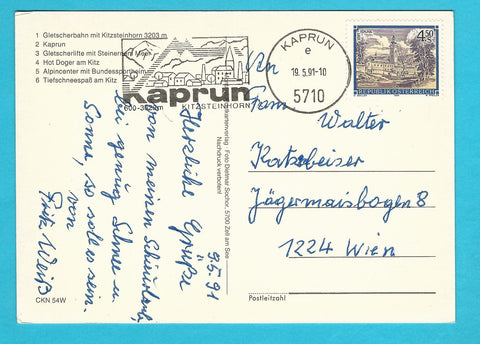 1 Gletscherbahn mit Kitzsteinhorn 3203 m
2 Kaprun
3 Gletscherlifte mit Steinernem Meer
4 Hot Doger am Kitz
5 Alpincenter mit Bundessportheim
6 Tiefschneespaß am Kitz
Kaprun
KITZSTEINHORN
KAPRUN
e
19.5.91-10
5710
4.50
REPUBLIK ÖSTERREICH
An
Fam
Walter
Katzbeiser
Jägermaisbogen 8
1224 Wien
Postleitzahl
Foto Dietmar Sochor, 5700 Zell am See
Nachdruck verboten!
9.5.91
Herzliche Grüße
von meinen Schiurlaub,
bei genug Schnee u.
Sonne, so soll es sein.
von
Fritz Weiß
CKN 54W